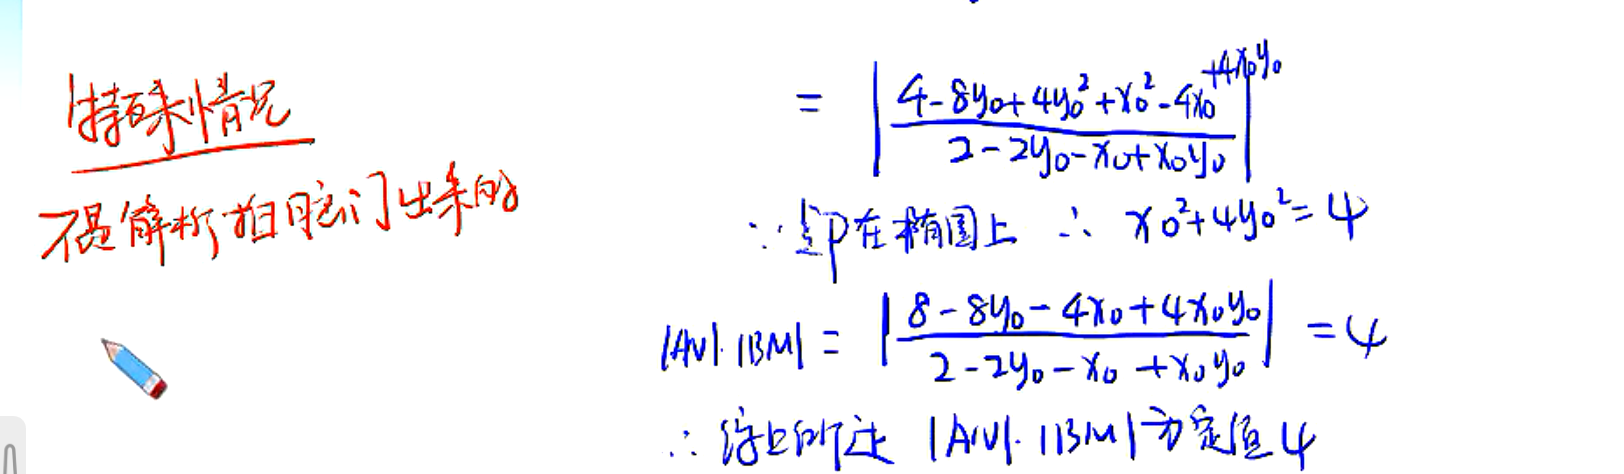 特殊情况
不是解析拍脑门出来的
= |(4-8y₀+4y₀²+x₀²-4x₀+4x₀y₀)/(2-2y₀-x₀+x₀y₀)|
∵ 点P在椭圆上 ∴ x₀²+4y₀²=4
|AN|·|BM| = |(8-8y₀-4x₀+4x₀y₀)/(2-2y₀-x₀+x₀y₀)| = 4
∴ 综上所述 |AN|·|BM|为定值4